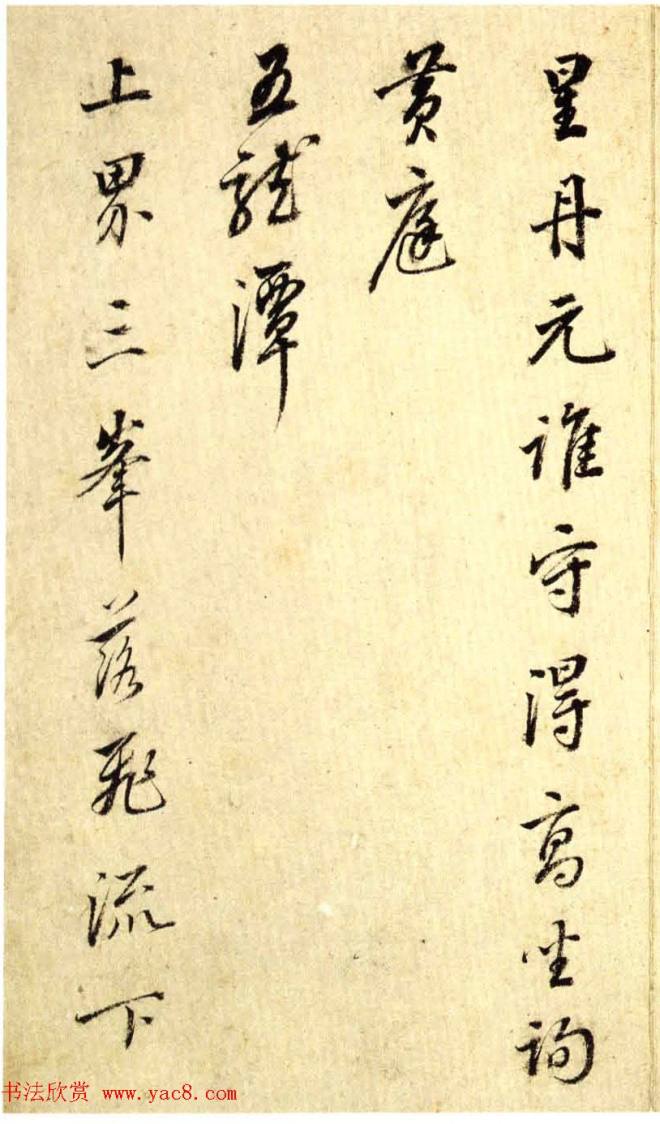 星丹元誰守得高坐詢
黄庭
五龍潭
上界三峯落飛流下
书法欣赏 www.yac8.com